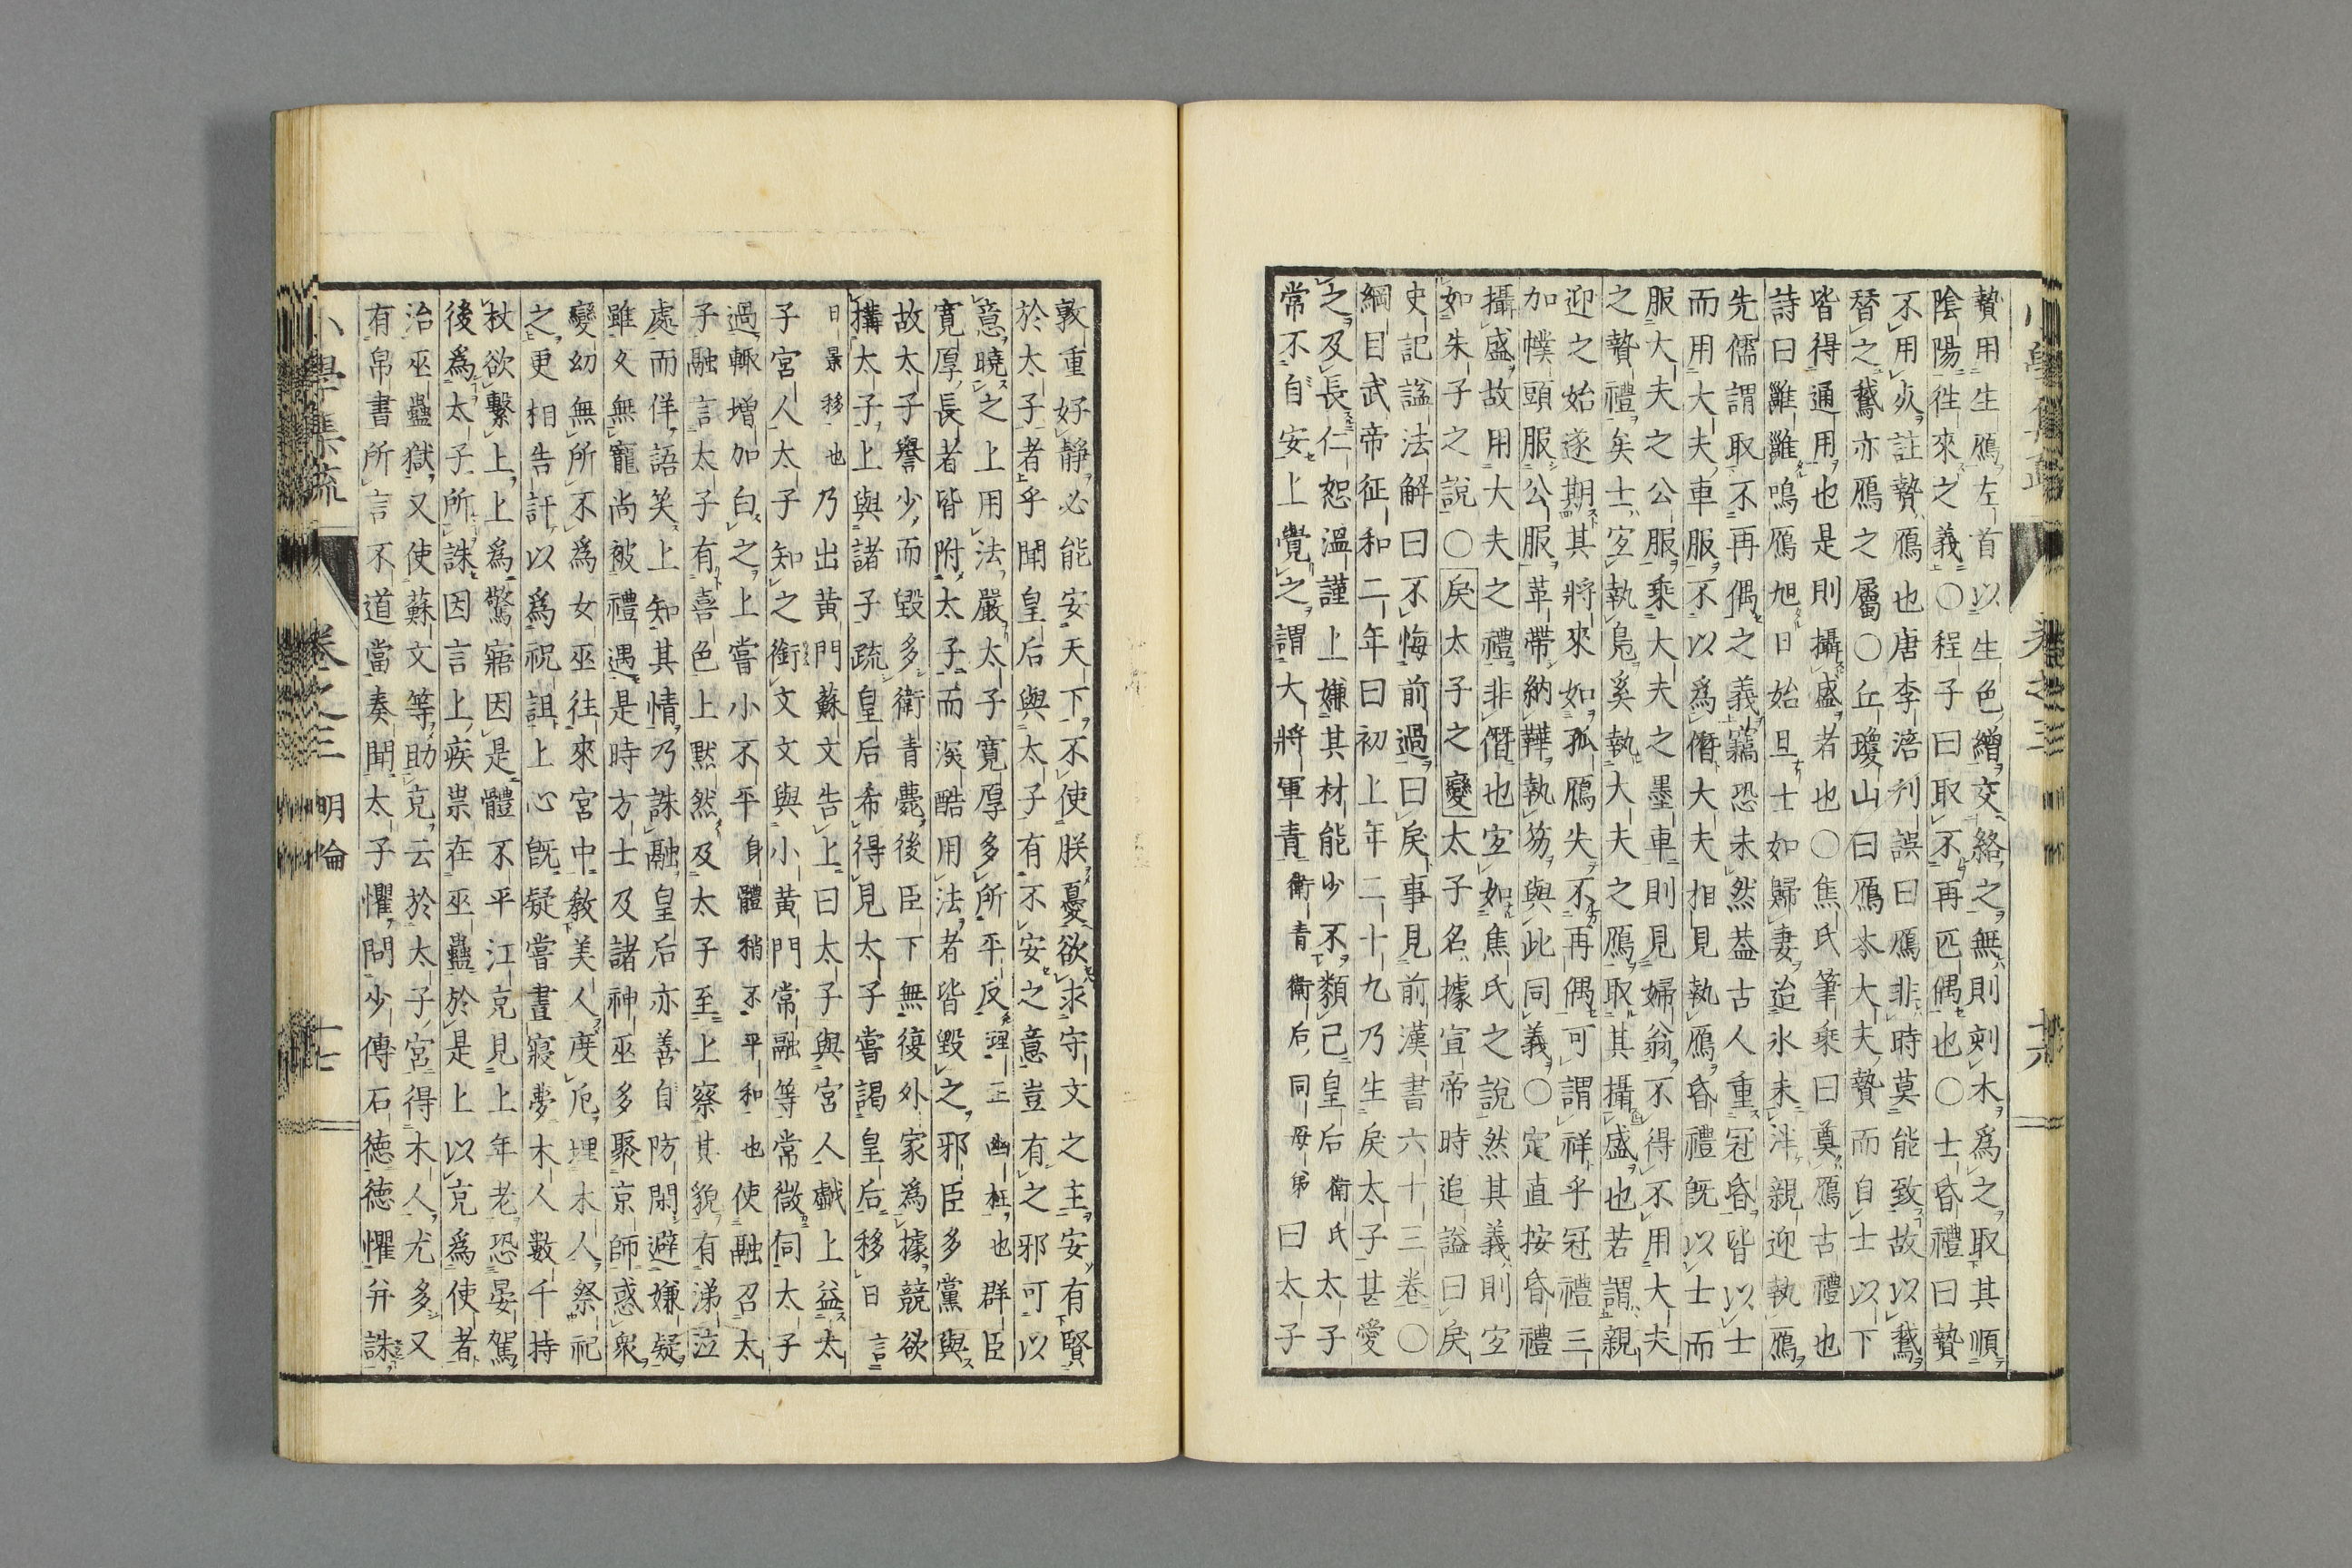 贄用生鴈左首以生色繒交絡之無則刻木爲之取其順
陰陽徃來之義〇程子曰取不再匹偶也〇士昏禮曰贄
不用死註贄鴈也唐李涪刋誤曰鴈非時莫能致故以鵞
替之鵞亦鴈之屬〇丘瓊山曰鴈本大夫贄而自士以下
皆得通用也是則攝盛者也〇焦氏筆乗曰奠鴈古禮也
詩曰雝雝鳴鴈旭日始旦士如歸妻迨氷未泮親迎執鴈
先儒謂取不再偶之義竊恐未然葢古人重冠昏皆以士
而用大夫車服不以爲僭大夫相見執鴈昏禮旣以士而
服大夫之公服乗大夫之墨車則見婦翁不得不用大夫
之贄禮矣士宐執鳬奚執大夫之鴈取其攝盛也若謂親
迎之始遂期其將來如孤鴈失不再偶可謂祥乎冠禮三
加幞頭服公服革帶納鞾執笏與此同義〇定直按昏禮
攝盛故用大夫之禮非僭也宐如焦氏之說然其義則宐
如朱子之說〇戾太子之變太子名據宣帝時追謚曰戾
史記謚法解曰不悔前過曰戾事見前漢書六十三卷〇
綱目武帝征和二年曰初上年二十九乃生戾太子甚愛
之及長仁恕溫謹上嫌其材能少不類己皇后衛氏太子
常不自安上覺之謂大將軍青衛青衛后同母弟曰太子
小學集疏 卷之三 十六
敦重好靜必能安天下不使朕憂欲求守文之主安有賢
於太子者乎聞皇后與太子有不安之意豈有之邪可以
意曉之上用法嚴太子寛厚多所平反理正幽枉也群臣
寛厚長者皆附太子而深酷用法者皆毀之邪臣多黨與
故太子譽少而毀多衛青薨後臣下無復外家爲據競欲
搆太子上與諸子疏皇后希得見太子嘗謁皇后移日言
日景移也乃出黄門蘇文告上曰太子與宮人戯上益太
子宮人太子知之銜文文與小黄門常融等常微伺太子
過輙增加白之上嘗小不平身體稍不平和也使融召太
子融言太子有喜色上默然及太子至上察其貌有涕泣
處而佯語笑上知其情乃誅融皇后亦善自防閑避嫌疑
雖久無寵尚被禮遇是時方士及諸神巫多聚京師惑衆
變幻無所不爲女巫往來宮中敎美人度厄埋木人祭祀
之更相告訐以爲祝詛上心旣疑嘗晝寢夢木人數千持
杖欲繫上上爲驚寤因是體不平江充見上年老恐晏駕
後爲太子所誅因言上疾祟在巫蠱於是上以充爲使者
治巫蠱獄又使蘇文等助充云於太子宮得木人尤多又
有帛書所言不道當奏聞太子懼問少傅石德德懼幷誅
小學集疏 卷之三 明倫 十七